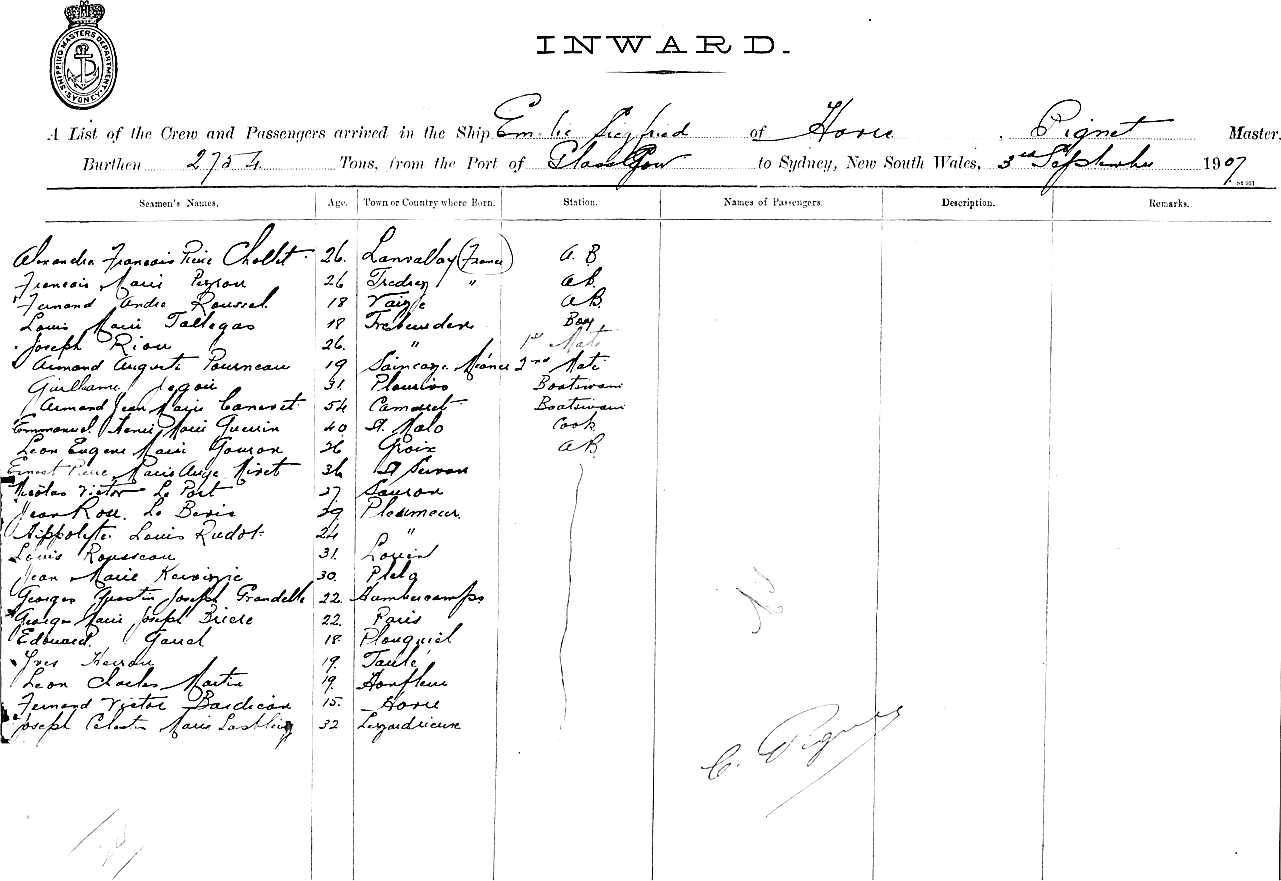 SHIPPING MASTERS DEPARTMENT. SYDNEY.
INWARD.
A List of the Crew and Passengers arrived in the Ship Emilie Siegfried of Havre, Pignet Master,
Burthen 2754 Tons, from the Port of Glasgow to Sydney, New South Wales, 3rd September 1907
Seamen's Names. Age. Town or Country where Born. Station. Names of Passengers. Description. Remarks.
Alexandre Francois Pierre Chollet 26. Lanvallay (France) A.B
Francois Marie Peyrou 26 " AB.
Fernand Andre Roussel 18 Vaige AB.
Louis Marie Tallegas 18 Trebeurden Boy
Joseph Riou 26. " 1st Mate
Armand Auguste Pourneau 19 2nd Mate
Guillaume Jegou 31. Plourivo Boatswain
Armand Jean Marie Canevet 54 Camaret Boatswain
Emmanuel Henri Marie Guerin 40 St Malo Cook
Leon Eugene Marie Gouron 26 Groix AB.
Ernest Pierre Marie Ange Miret 36 St Servan
Nicolas Victor Le Port 27 Sauzon
Jean Rou. Le Beris 29 Ploemeur.
Hippolyte Louis Rudot 24 "
Louis Rousseau 31.
Jean Marie 30.
Georges Joseph Grandelle 22. Humbercamps
Georges Marie Joseph Briere 22. Paris
Edouard 18 Plouguiel
Yves Kerrou 19. Taulé
Leon Charles Martin 19. Honfleur
Fernand Victor 15. Havre
Joseph Celestin Marie 32 Lezardrieux
C. Pignet